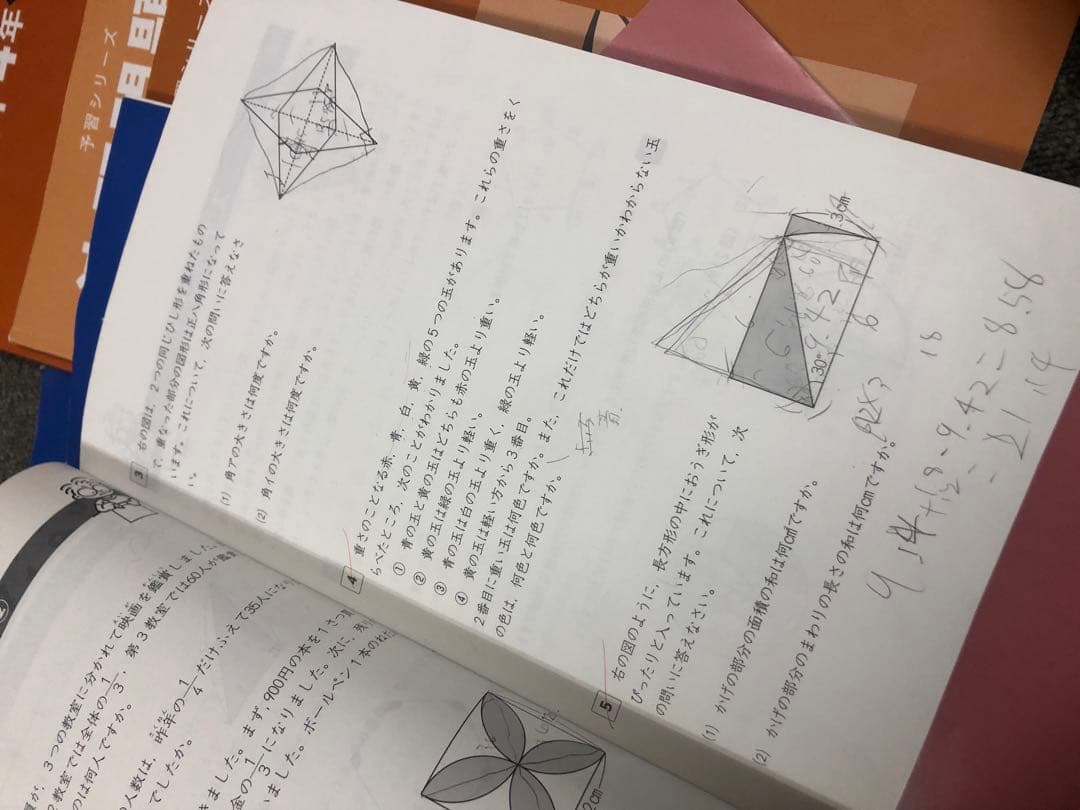 4年
予習シリーズ
3 右の図は、2つの同じひし形を重ねたもの
で、重なった部分の図形は正八角形になって
います。これについて、次の問いに答えなさ
い。
(1) 角アの大きさは何度ですか。
(2) 角イの大きさは何度ですか。
4 重さのことなる赤、青、白、黄、緑の5つの玉があります。これらの重さをく
らべたところ、次のことがわかりました。
① 青の玉と黄の玉はどちらも赤の玉より重い。
② 黄の玉は緑の玉より軽い。
③ 青の玉は白の玉より重く、緑の玉より軽い。
④ 黄の玉は軽い方から3番目。
2番目に重い玉は何色ですか。また、これだけではどちらが重いかわからない玉
の色は、何色と何色ですか。
5 右の図のように、長方形の中におうぎ形が
ぴったりと入っています。これについて、次
の問いに答えなさい。
3cm
30°
9.42
6
(1) かげの部分の面積の和は何cm²ですか。
(2) かげの部分のまわりの長さの和は何cmですか。
18
9.42=8.58
3つの教室に分かれて映画を鑑賞しました。
教室では全体の1/3、第3教室では60人が鑑
のは何人ですか。
人数は、昨年の1/4だけふえて35人にな
でしたか。
きました。まず、900円の本を1さつ
金の1/3になりました。次に、残
いました。ボールペン1本のね
2cm